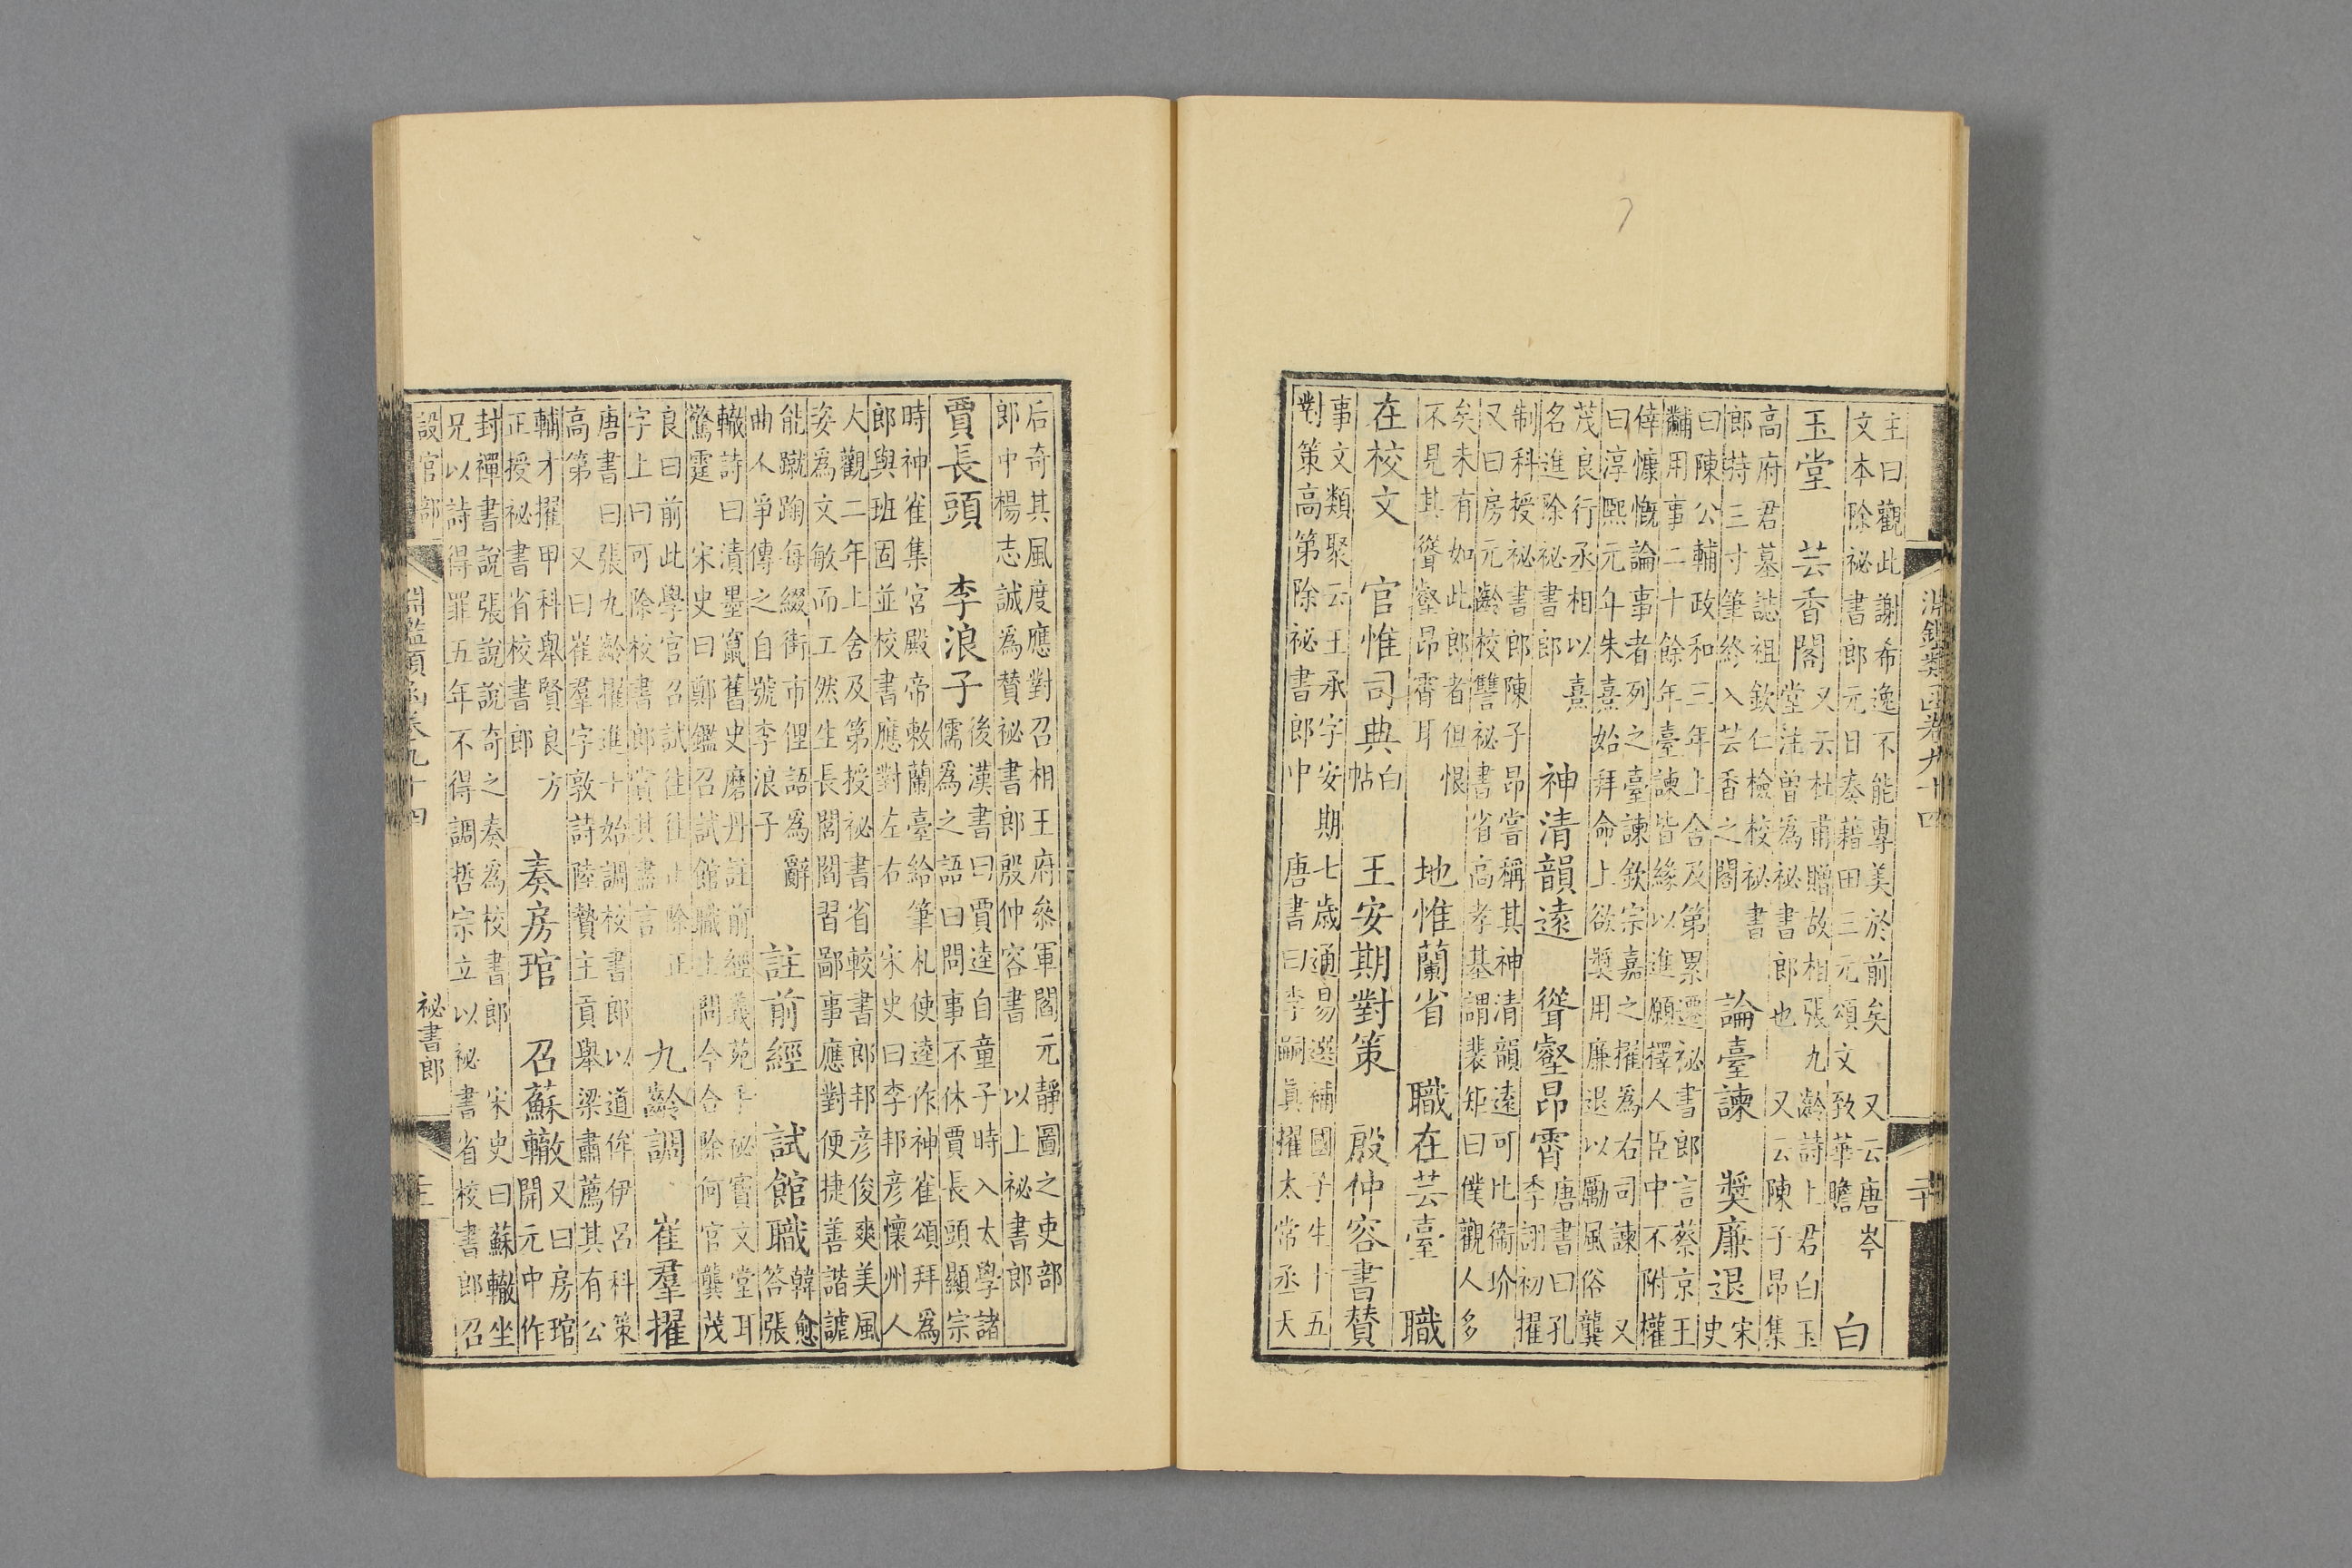 淵鑑類函卷九十四
二十
主曰觀此謝希逸不能專美於前矣 又云唐岑
文本除祕書郎元日奏藉田三元頌文致華瞻 白
玉堂 芸香閣 又云杜甫贈故相張九齡詩上君白玉
堂注曾為祕書郎也 又云陳子昂集
高府君墓誌祖欽仁檢校祕書
郎持三寸筆終入芸香之閣 論臺諫 獎廉退 宋
史
曰陳公輔政和三年上舍及第累遷祕書郎言蔡京王
黼用事二十餘年臺諫皆緣以進願擇人臣中不附權
倖慷慨論事者列之臺諫欽宗嘉之擢為右司諫 又
曰淳熙元年朱熹始拜命上欲奬用廉退以勵風俗龔
茂良行丞相以熹
名進除祕書郎 神清韻遠 聳壑昂霄 唐書曰孔
李詡初擢
制科授祕書郎陳子昂嘗稱其神清韻遠可比衞玠
又曰房元齡校讐祕書省高孝基謂裴矩曰僕觀人多
矣未有如此郎者但恨
不見其聳壑昂霄耳 地惟蘭省 職在芸臺 職
在校文 官惟司典 白
帖 王安期對策 殷仲容書贊
事文類聚云王承字安期七歲通易選補國子生十五
對策高第除祕書郎中 唐書曰李嗣真擢太常丞天
后奇其風度應對召相王府叅軍閻元靜圖之吏部
郎中楊志誠為贊祕書郎殷仲容書 以上祕書郎
賈長頭 李浪子 後漢書曰賈逵自童子時入太學諸
儒為之語曰問事不休賈長頭顯宗
時神雀集宮殿帝敕蘭臺給筆札使逵作神雀頌拜爲
郎與班固並校書應對左右 宋史曰李邦彦懷州人
大觀二年上舍及第授祕書省較書郎邦彦俊爽美風
姿爲文敏而工然生長閭閻習鄙事應對便捷善諧謔
能蹴踘每綴街市俚語爲辭
曲人爭傳之自號李浪子 註前經 試館職 韓愈
答張
轍詩曰漬墨竄舊史磨丹註前經義苑手祕寳文堂耳
驚霆 宋史曰鄭鑑召試館職上問今合除何官龔茂
良曰前此學官召試往往止除正
字上曰可除校書郎賞其盡言 九齡調 崔羣擢
唐書曰張九齡擢進士始調校書郎以道侔伊呂科策
高第 又曰崔羣字敦詩陸贄主貢舉梁肅薦其有公
輔才擢甲科舉賢良方
正授祕書省校書郎 奏房琯 召蘇轍 又曰房琯
開元中作
封禪書說張說說奇之奏爲校書郎 宋史曰蘇轍坐
兄以詩得罪五年不得調哲宗立以祕書省校書郎召
設官部
淵鑑類函卷九十四
祕書郎